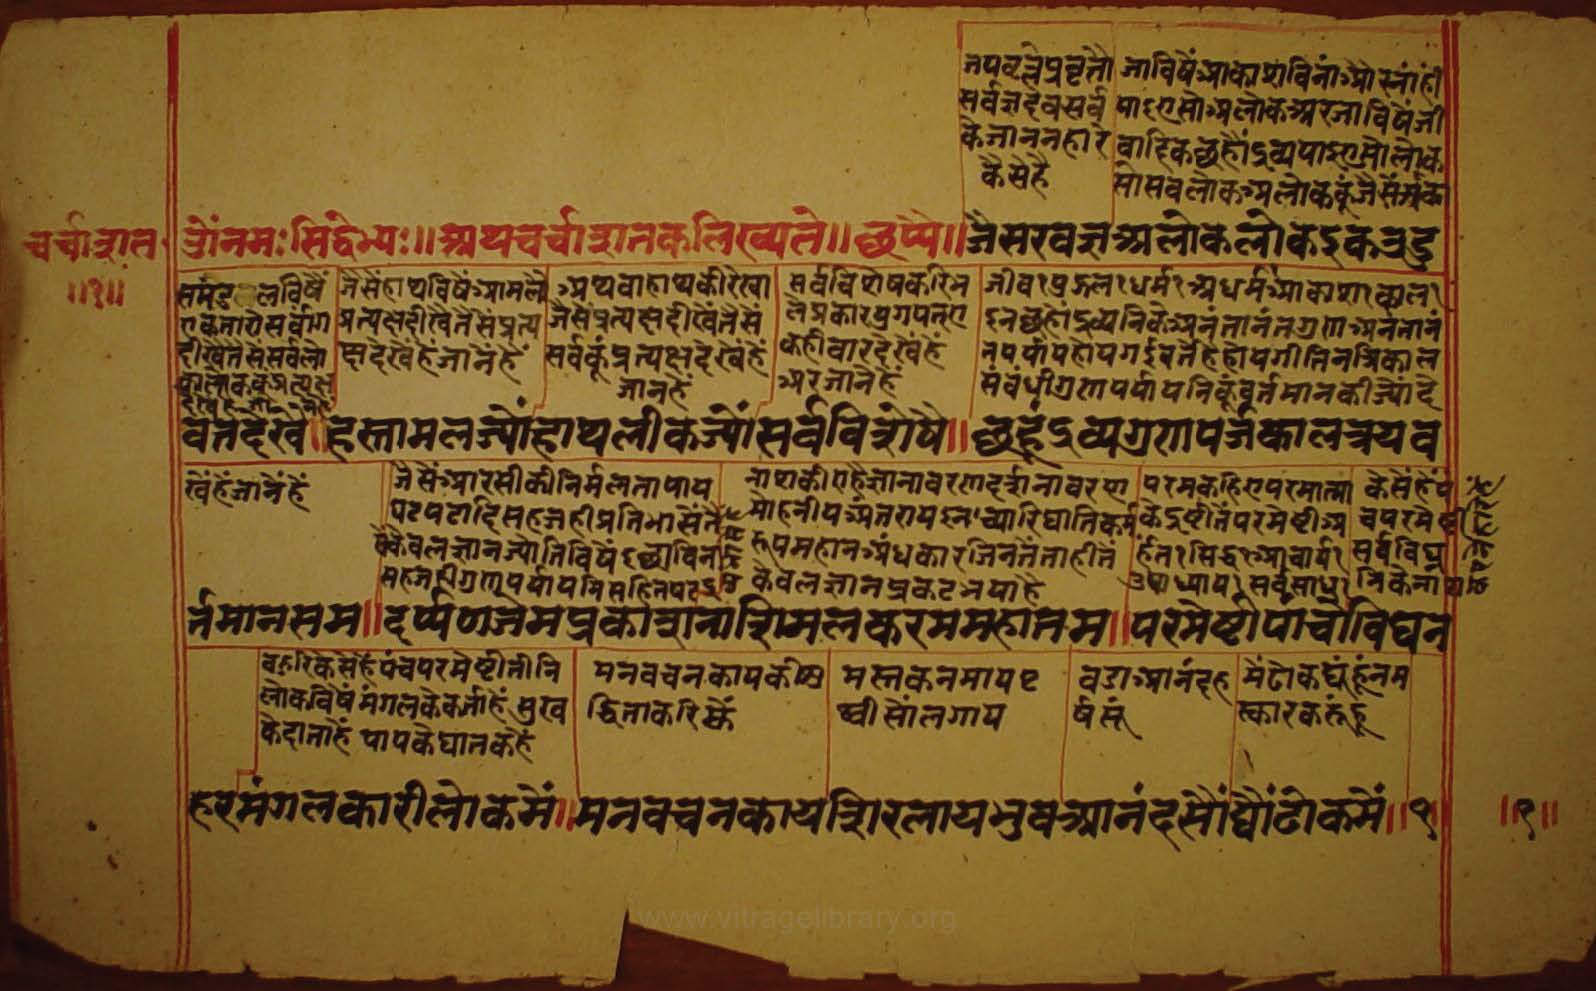 जयवंत प्रवृत्तौ
सर्वज्ञदेव सर्व
के जाननहारे
कैसे है
जा विषैं आकाश विना और नांही
पाइए सो अलोक अर जा विषैं जी
वादिक छहौं द्रव्य पाइए सो लोक
सो सब लोक अलोक कूं जैसें
चर्चाशत
॥१॥
ॐ नमः सिद्धेभ्यः॥ अथ चर्चाशतक लिख्यते॥ छप्पै॥ जै सरवज्ञ अलोक लोक इक उडु
विषैं
एक तारो सर्वांग
दीखै तैसें सर्व लो
कालोक कूं प्रत्यक्ष
जैसें हाथ विषैं आमलौ
प्रत्यक्ष दीखै तैसें प्रत्य
क्ष देखें हैं जानें हैं
अथवा हाथ की रेखा
जैसें प्रत्यक्ष दीखें तैसें
सर्व कूं प्रत्यक्ष देखें हैं
जानें हैं
सर्व विशेष करि
प्रकार युगपत् ए
क ही वार देखें हैं
अर जानें हैं
जीव१ पुद्गल१ धर्म१ अधर्म१ आकाश१ काल१
इन छहौं द्रव्यनि के अनंतानंत गुण अनंतानं
त पर्याय होय गई वर्तै है होयगी तिन त्रिकाल
संबंधी गुण पर्यायनि कूं वर्तमान की ज्यों दे
वत देखै॥ हस्तामल ज्यौं हाथलीक ज्यौं सर्व विशेषै॥ छहं द्रव्य गुण पर्ज काल त्रय व
खें हैं जानें हैं
जैसें आरसी की निर्मलता पाय
घट पटादि सहज ही प्रतिभासें तै
सैं केवलज्ञान ज्योति विषै इच्छा विना
सहज ही गुण पर्याय सहित
नाश की ए है ज्ञानावरण दर्शनावरण
मोहनीय अंतराय इन च्यारि घाति कर्म
रूप महान अंधकार जिननें ताही तैं
केवलज्ञान प्रकट भया है
परम कहिए परमात्मा
के इष्टी तैं परमेष्टी अ
र्हंत१ सिद्ध१ आचार्य१
उपाध्याय१ सर्वसाधु१
कैसें हैं पं
च परमेष्टी
सर्व विघ्न
नि के ना
र्तमान सम॥ दर्प्पण जेम प्रकाश नाशि मल कर्म महातम॥ परमेष्टी पांचौ विघन
बहुरि कैसे हैं पंच परमेष्टी तीनि
लोक विषैं मंगल के कर्ता हैं सुख
के दाता हैं पाप के घातक हैं
मन वचन काय की शु
द्धिता करिकें
मस्तक नमाय पृ
थ्वी सों लगाय
बडा आनंद ह
र्ष सूं
मैं ढोक द्यूं हूं नम
स्कार करूं हूं
हर मंगलकारी लोक मैं॥ मन वचन काय शिर लाय भुव आनंद सौं द्यौं ढोक मैं॥१
॥१॥
www.vitragelibrary.org